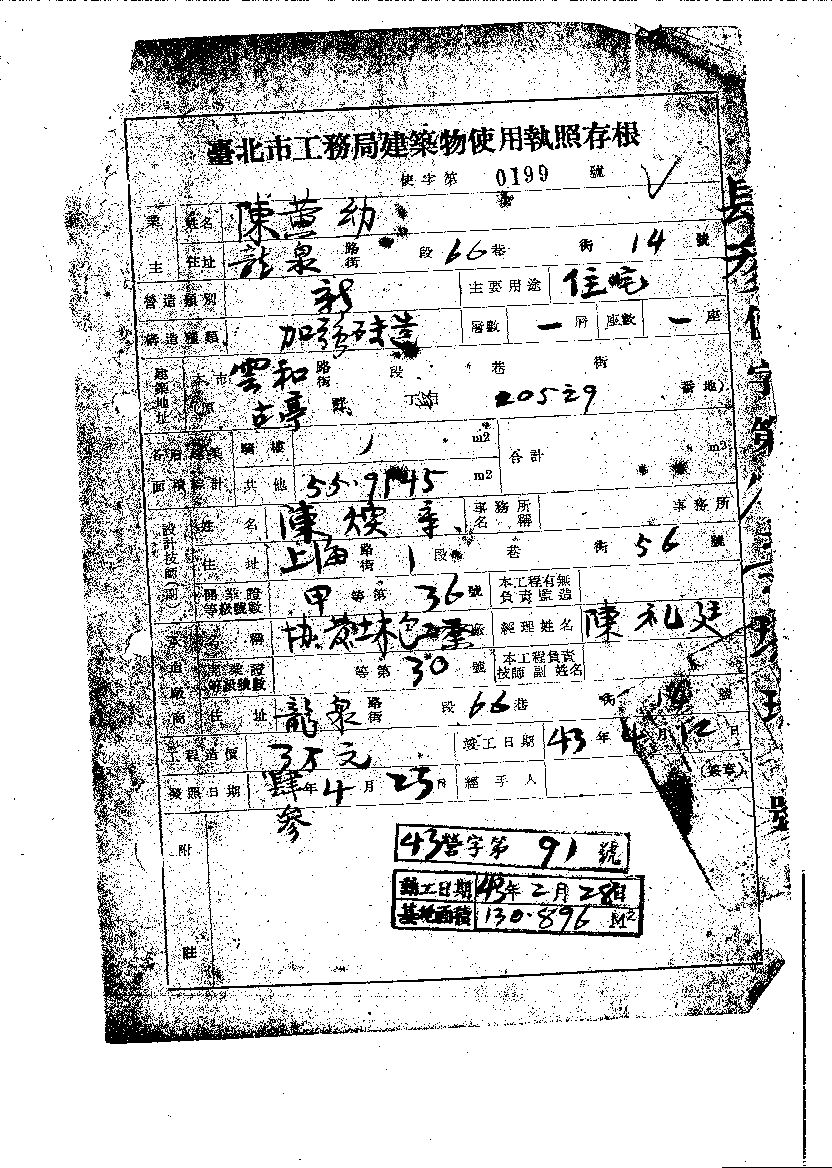 臺北市工務局建築物使用執照存根
使字第 0199 號
業主 姓名 陳 幼
住址 龍泉 路街 段 66 巷 街 14 號
營造類別 新 主要用途 住宅
構造種類 加強磚造 層數 一 層 座數 一 座
建築地址 本市 雲和 路街 段 巷 街
原 古亭 205-29 番地)
各層建築面積合計 騎樓 m2 合計 m2
其他 m2
設計技師(副) 姓名 陳 章 事務所名稱 事務所
住址 上海 路街 1 段 巷 街 56 號
開業證等級號數 甲 等第 36 號 本工程有無負責監造
營造廠商 名稱 協 土木包工業 廠 經理姓名 陳礼廷
開業證等級號數 等第 30 號 本工程負責技師副姓名
住址 龍泉 路街 段 66 巷 街 14 號
工程造價 3万元 竣工日期 43 年 4 月 12 日
發照日期 肆參 年 4 月 23 日 經手人 (簽章)
附註
43營字第 91 號
開工日期 43年 2月 28日
基地面積 130.896 M2